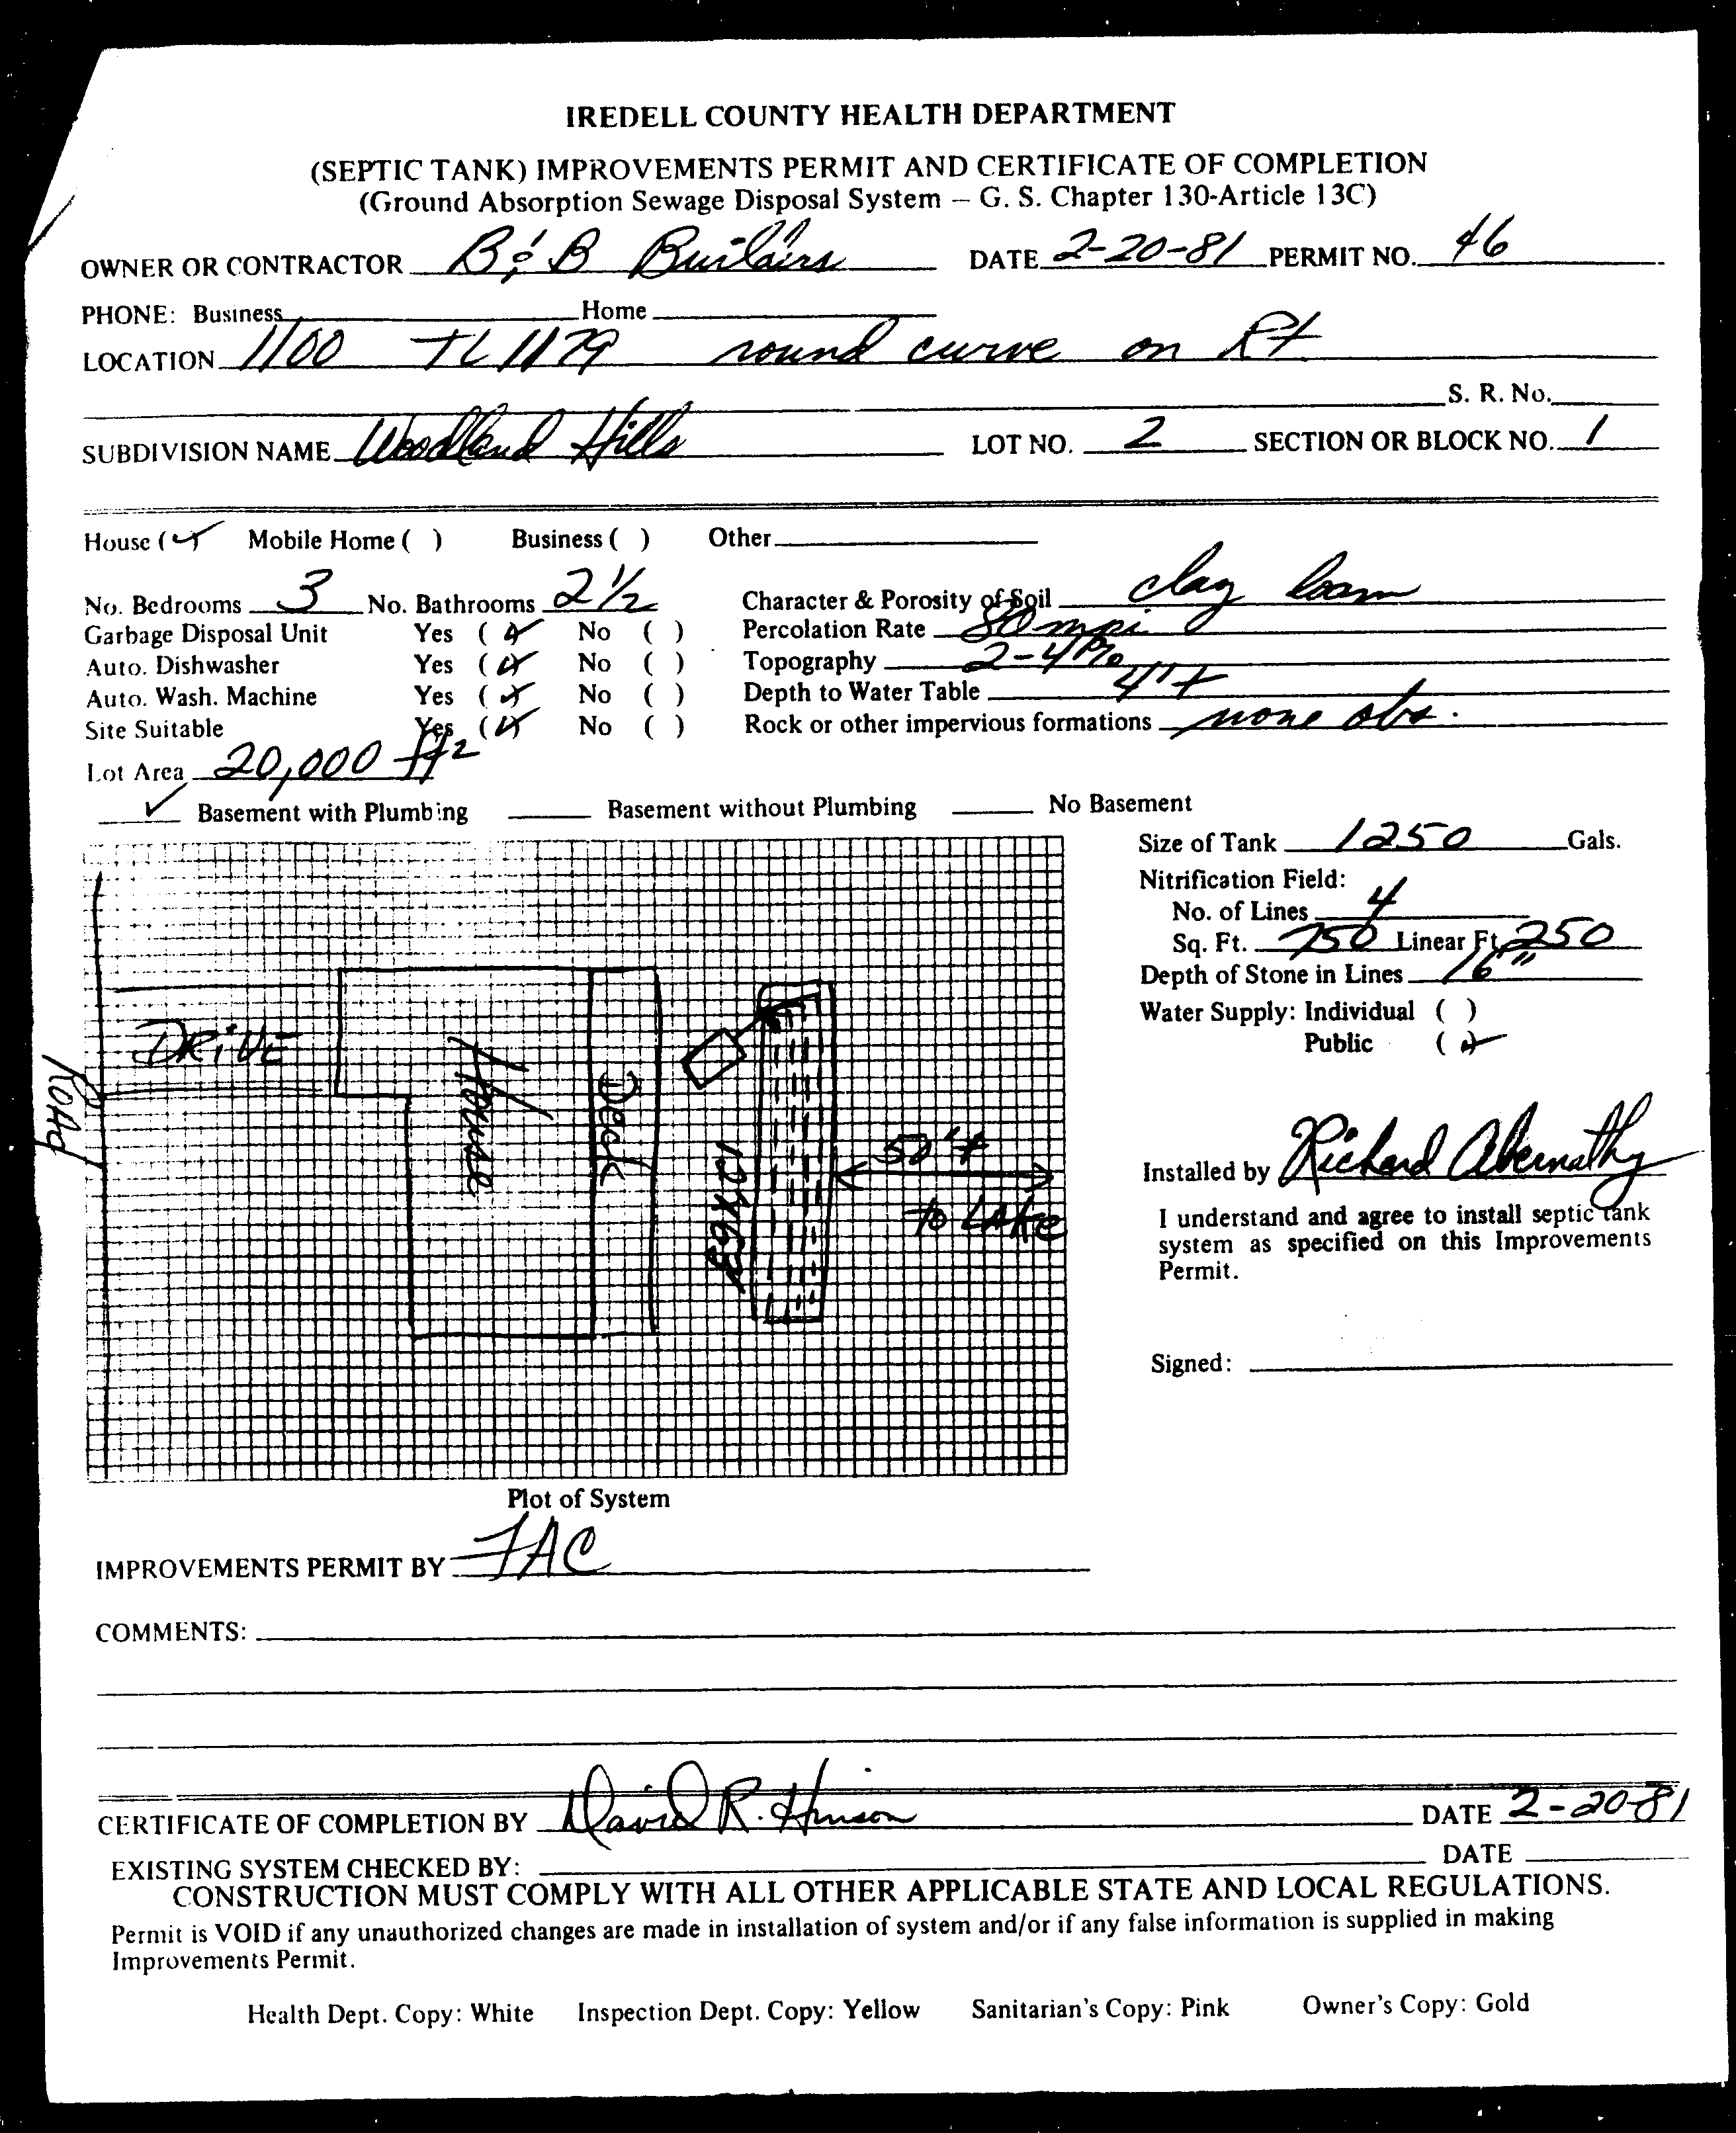 IREDELL COUNTY HEALTH DEPARTMENT
(SEPTIC TANK) IMPROVEMENTS PERMIT AND CERTIFICATE OF COMPLETION
(Ground Absorption Sewage Disposal System – G. S. Chapter 130-Article 13C)
OWNER OR CONTRACTOR B & B Builders DATE 2-20-81 PERMIT NO. 46
PHONE: Business Home
LOCATION 1100 TL 1179 round curve on Rt
S. R. No.
SUBDIVISION NAME Woodland Hills LOT NO. 2 SECTION OR BLOCK NO. 1
House (✓) Mobile Home ( ) Business ( ) Other
No. Bedrooms 3 No. Bathrooms 2 1/2 Character & Porosity of Soil clay loam
Garbage Disposal Unit Yes (✓) No ( ) Percolation Rate 80 mpi
Auto. Dishwasher Yes (✓) No ( ) Topography 2-4%
Auto. Wash. Machine Yes (✓) No ( ) Depth to Water Table 4'+
Site Suitable Yes (✓) No ( ) Rock or other impervious formations none obs.
Lot Area 20,000 ft2
✓ Basement with Plumbing Basement without Plumbing No Basement
Size of Tank 1250 Gals.
Nitrification Field:
No. of Lines 4
Sq. Ft. 750 Linear Ft. 250
Depth of Stone in Lines 16"
Water Supply: Individual ( )
Public (✓)
ROAD
DRIVE
House
Deck
50'+
to LAKe
Installed by Richard Abernathy
I understand and agree to install septic tank
system as specified on this Improvements
Permit.
Signed:
Plot of System
IMPROVEMENTS PERMIT BY FAC
COMMENTS:
CERTIFICATE OF COMPLETION BY David R. Hinson DATE 2-20-81
EXISTING SYSTEM CHECKED BY: DATE
CONSTRUCTION MUST COMPLY WITH ALL OTHER APPLICABLE STATE AND LOCAL REGULATIONS.
Permit is VOID if any unauthorized changes are made in installation of system and/or if any false information is supplied in making
Improvements Permit.
Health Dept. Copy: White Inspection Dept. Copy: Yellow Sanitarian's Copy: Pink Owner's Copy: Gold